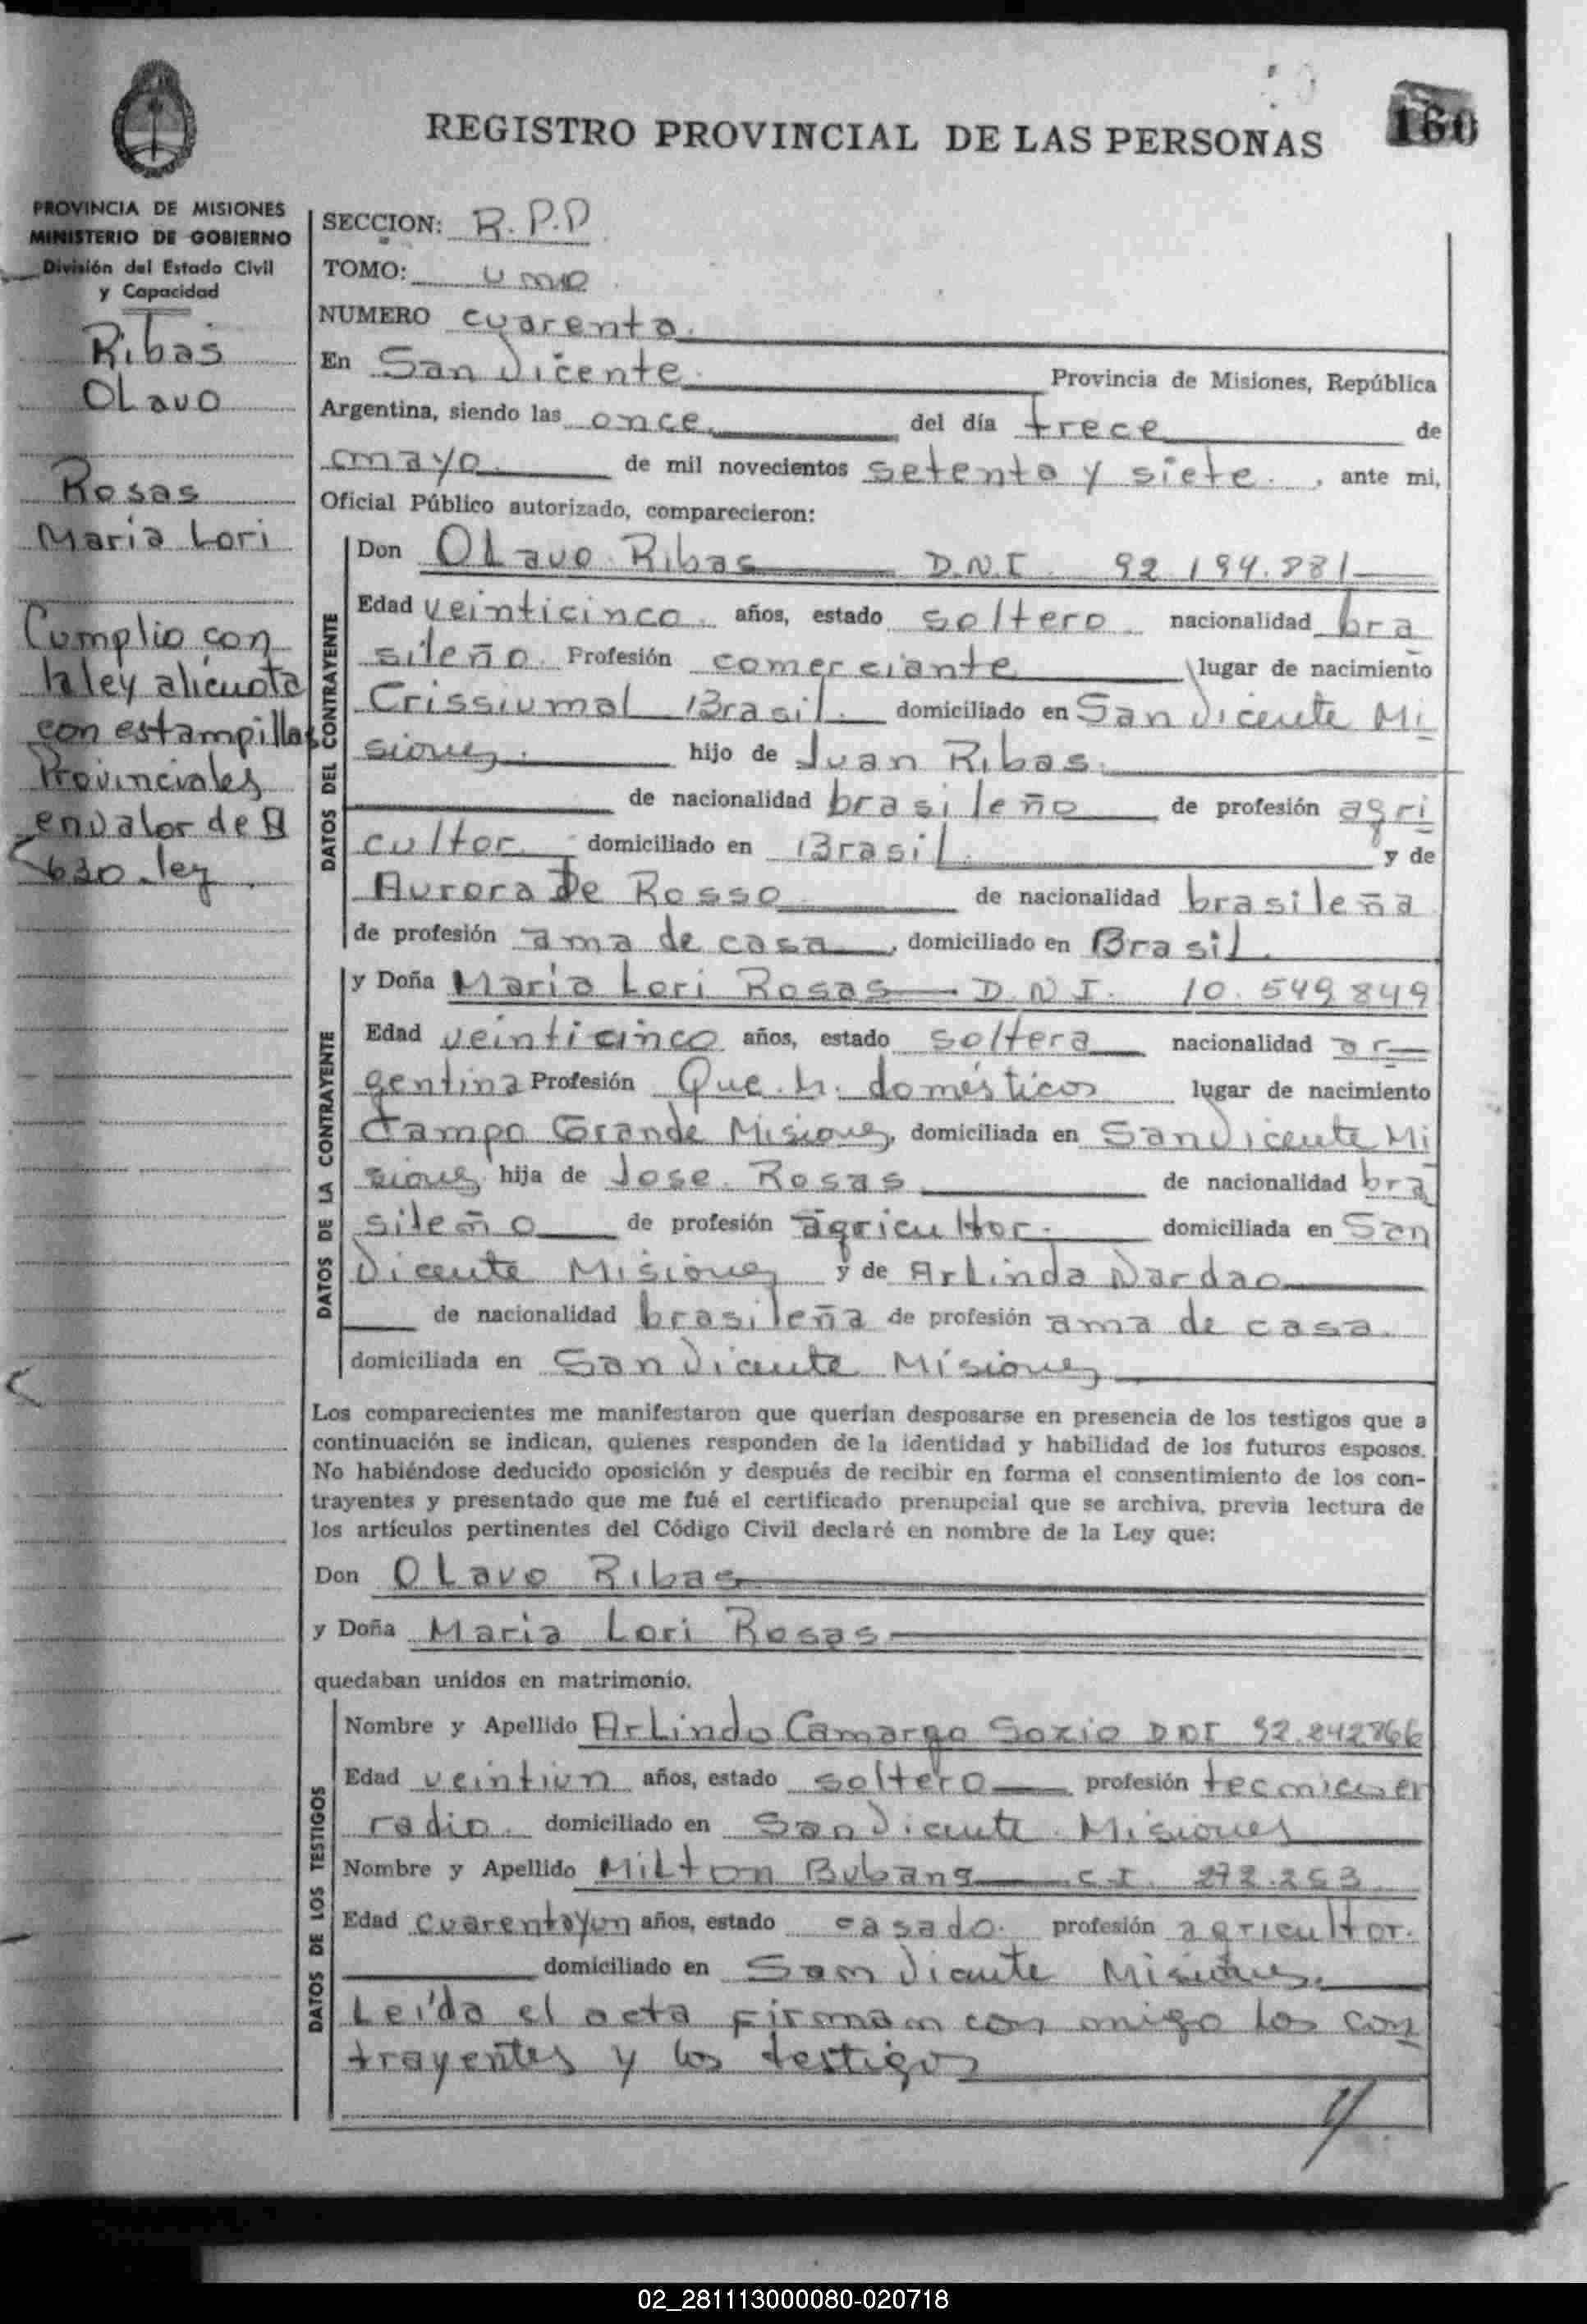 160
REGISTRO PROVINCIAL DE LAS PERSONAS
PROVINCIA DE MISIONES
MINISTERIO DE GOBIERNO
División del Estado Civil
y Capacidad
Ribas
OLavo
Rosas
Maria Lori
Cumplio con
la ley alicuota
con estampillas
Provinciales
en valor de $
630. ley
SECCION: R.P.P
TOMO: uno
NUMERO cuarenta.
En San Vicente. Provincia de Misiones, República
Argentina, siendo las once. del día trece de
mayo. de mil novecientos setenta y siete. , ante mi,
Oficial Público autorizado, comparecieron:
DATOS DEL CONTRAYENTE
Don OLavo Ribas D.N.I. 92.194.881
Edad veinticinco. años, estado soltero. nacionalidad bra
sileño. Profesión comerciante lugar de nacimiento
Crissiumal Brasil. domiciliado en San Vicente Mi
siones. hijo de Juan Ribas.
de nacionalidad brasileño de profesión agri
cultor. domiciliado en Brasil. y de
Aurora De Rosso de nacionalidad brasileña
de profesión ama de casa, domiciliado en Brasil.
DATOS DE LA CONTRAYENTE
y Doña Maria Lori Rosas D.N.I. 10.549.849
Edad veinticinco años, estado soltera nacionalidad ar
gentina Profesión Que. h. domésticos lugar de nacimiento
Campo Grande Misiones, domiciliada en San Vicente Mi
siones, hija de Jose Rosas de nacionalidad bra
sileño de profesión agricultor. domiciliada en San
Vicente Misiones y de ArLinda Dardao
de nacionalidad brasileña de profesión ama de casa.
domiciliada en San Vicente Misiones
Los comparecientes me manifestaron que querían desposarse en presencia de los testigos que a
continuación se indican, quienes responden de la identidad y habilidad de los futuros esposos.
No habiéndose deducido oposición y después de recibir en forma el consentimiento de los con-
trayentes y presentado que me fué el certificado prenupcial que se archiva, previa lectura de
los artículos pertinentes del Código Civil declaré en nombre de la Ley que:
Don OLavo Ribas
y Doña Maria Lori Rosas
quedaban unidos en matrimonio.
DATOS DE LOS TESTIGOS
Nombre y Apellido ArLindo Camargo Sozio DNI 92.242.766
Edad veintiun años, estado soltero profesión tecnico en
radio. domiciliado en San Vicente Misiones
Nombre y Apellido MiLton Bubans C.I. 272.253.
Edad cuarentayun años, estado casado. profesión agricultor.
domiciliado en San Vicente Misiones.
Leída el acta firman con migo los con
trayentes y los testigos
02_281113000080-020718